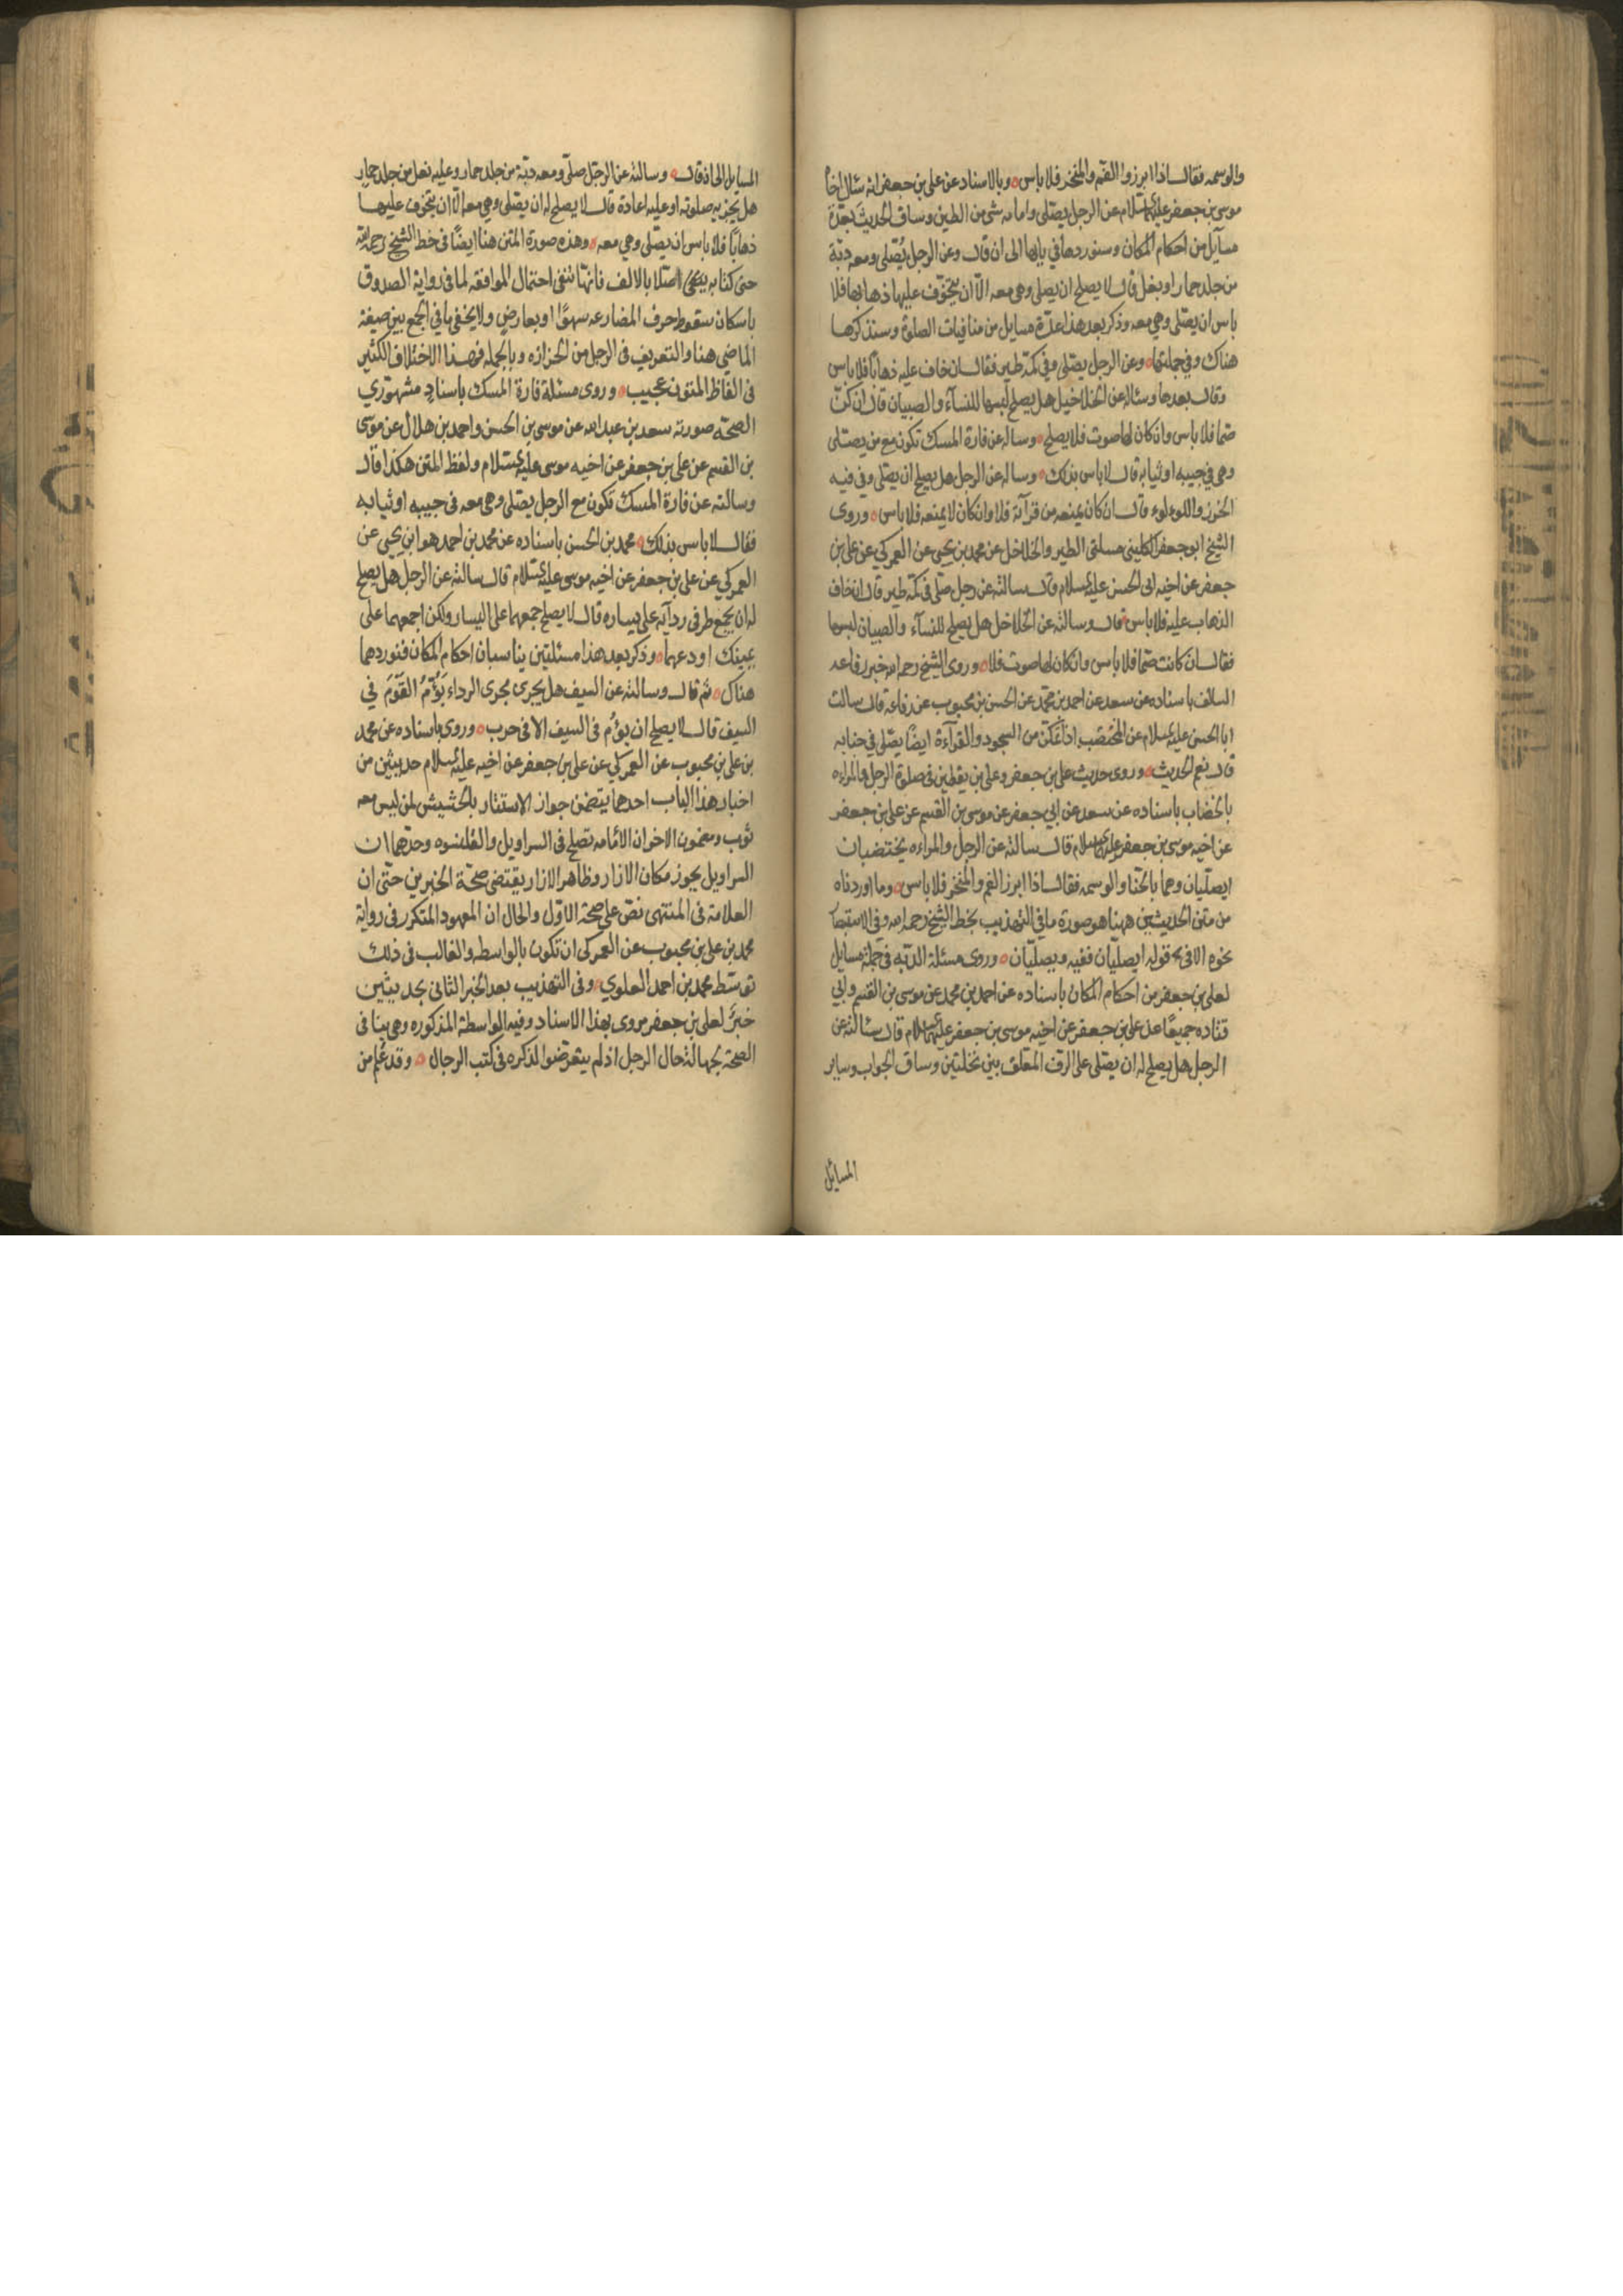 والوسمه فقال اذا ابرزوا الفم والمنخر فلا باس ٥ وبالاسناد عن علي بن جعفر انه سئال اخاه
موسى بن جعفر عليهما السلام عن الرجل يصلى وامامه شى من الطين وساق الحديث بعدة
مسآيل من احكام المكان وسنوردها في بابها الى ان قال وعن الرجل يُصلى ومعه دبّة
من جلد حمار او بغل قال لا يصلح ان يصلى وهى معه الّا ان يتخوّف عليها ذهابها فلا
باس ان يصلى وهى معه وذكر بعد هذا عدّة مسايل من منافيات الصلوة وسنذكرها
هناك وفي جملتها ٥ وعن الرجل يصلى وفي كمّه طير فقال ان خاف عليه ذهابًا فلا باس
وقال بعدها وسئاله عن الخلاخيل هل يصلح لبسها للنسآء والصبيان قال ان كنّ
صمّا فلا باس وان كان لها صوت فلا يصلح ٥ وساله عن فارة المسك تكون مع من يصلى
وهى في جيبه او ثيابه قال لا باس بذلك ٥ وساله عن الرجل هل يصلح ان يصلى وفي فيه
الخرز واللوءلوء قال ان كان يمنعه من قرآته فلا وان كان لا يمنعه فلا باس ٥ وروى
الشيخ ابو جعفر الكلينى مسلتى الطير والخلاخل عن محمد بن يحيى عن العمركي عن على بن
جعفر عن اخيه ابى الحسن عليه السلام قال سالته عن رجل صلى في كمّه طير قال ان خاف
الذهاب عليه فلا باس قال وسالته عن الخلاخل هل يصلح للنسآء والصبيان لبسها
فقال ان كانت صمّا فلا باس وان كان لها صوت فلا ٥ وروى الشيخ رحمه الله خبر رفاعه
السالف باسناده عن سعد عن احمد بن محمّد عن الحسن بن محبوب عن رفاعه قال سالت
ابا الحسن عليه السلام عن المختضب اذا تمكّن من السجود والقرآءة ايضًا يصلى في حنايه
قال نعم الحديث ٥ وروى حديث على بن جعفر وعلى بن يقطين فى صلوة الرجل والمراءه
بالخضاب باسناده عن سعد عن ابي جعفر عن موسى بن القسم عن على بن جعفر
عن اخيه موسى بن جعفر عليهما السلام قال سالته عن الرجل والمراءه يختضبان
ايصلّيان وهما بالحنّا والوسمه فقال اذا ابرز الفم والمنخر فلا باس ٥ وما اوردناه
من متن الحديثين ههنا هو صورة ما في التهذيب بخط الشيخ رحمه الله وفي الاستبصار
نحوه الا فى قوله ايصلّيان ففيه ويصلّيان ٥ وروى مسئلة الدبّه فى جملة مسايل
لعلى بن جعفر من احكام المكان باسناده عن احمد بن محمد عن موسى بن القسم وابي
قتاده جميعًا عن على بن جعفر عن اخيه موسى بن جعفر عليهما السلام قال سئالته عن
الرجل هل يصلح له ان يصلى على الرف المعلق بين نخلتين وساق الجواب وساير
المسايل
المسايل الى ان قال ٥ وسالته عن الرجل صلّى ومعه دبّة من جلد حمار وعليه نعل من جلد حمار
هل يجزيه صلوته او عليه اعادة قال لا يصلح له ان يصلى وهى معه الّا ان يتخوف عليها
ذهابًا فلا باس ان يصلى وهى معه ٥ وهذه صورة المتن هنا ايضًا فى خط الشيخ رحمه الله
حتى كتابه صلا بالالف فانها تنفى احتمال الموافقه لما فى رواية الصدوق
باسكان سقوط حرف المضارعه سهوًا او بعارض ولا يخفى ما في الجمع بين صيغة
الماضى هنا والتعريف فى الرجل من الحزازه وبالجمله فهذا الاختلاف الكثير
فى الفاظ المتون عجيب ٥ وروى مسئلة فارة المسك باسنادٍ مشهورى
الصحّه صورته سعد بن عبد الله عن موسى بن الحسن واحمد بن هلال عن موسى
بن القسم عن على بن جعفر عن اخيه موسى عليه السلام ولفظ المتن هكذا قال
وسالته عن فارة المسك تكون مع الرجل يصلى وهى معه فى جيبه او ثيابه
فقال لا باس بذلك ٥ محمد بن الحسن باسناده عن محمد بن احمد هو ابن يحيى عن
العمركي عن على بن جعفر عن اخيه موسى عليه السلام قال سالته عن الرجل هل يصلح
له ان يجمع طرفى ردآيه على يساره قال لا يصلح جمعهما على اليسار ولكن اجمعهما على
يمينك او دعهما ٥ وذكر بعد هذا مسئلتين يناسبان احكام المكان فنوردهما
هناك ٥ ثم قال وسالته عن السيف هل يجرى مجرى الرداء يَؤُمّ القَومَ في
السيف قال لا يصلح ان يؤم فى السيف الا فى حرب ٥ وروى باسناده عن محمد
بن على بن محبوب عن العمركي عن على بن جعفر عن اخيه عليه السلام حديثين من
اخبار هذا الباب احدهما يتضمن جواز الاستتار بالحشيش لمن ليس معه
ثوب ومضمون الاخر ان الامامه تصلح فى السراويل والقلنسوه وحدهما ان
السراويل يجوز مكان الازار وظاهر الازار يقتضى صحّة الخبرين حتّى ان
العلامة فى المنتهى نصّ على صحة الاوّل والحال ان المعهود المتكرر فى رواية
محمد بن على بن محبوب عن العمركى ان تكون بالواسطه والغالب فى ذلك
توسّط محمد بن احمد العلوي ٥ وفى التهذيب بعد الخبر الثانى بحديثين
خبرٌ لعلى بن جعفر مروى بهذا الاسناد وفيه الواسطة المذكوره وهى ينافى
الصحّة بجهالة حال الرجل اذ لم يتعرّضوا لذكره فى كتب الرجال ٥ وقد عُلم من